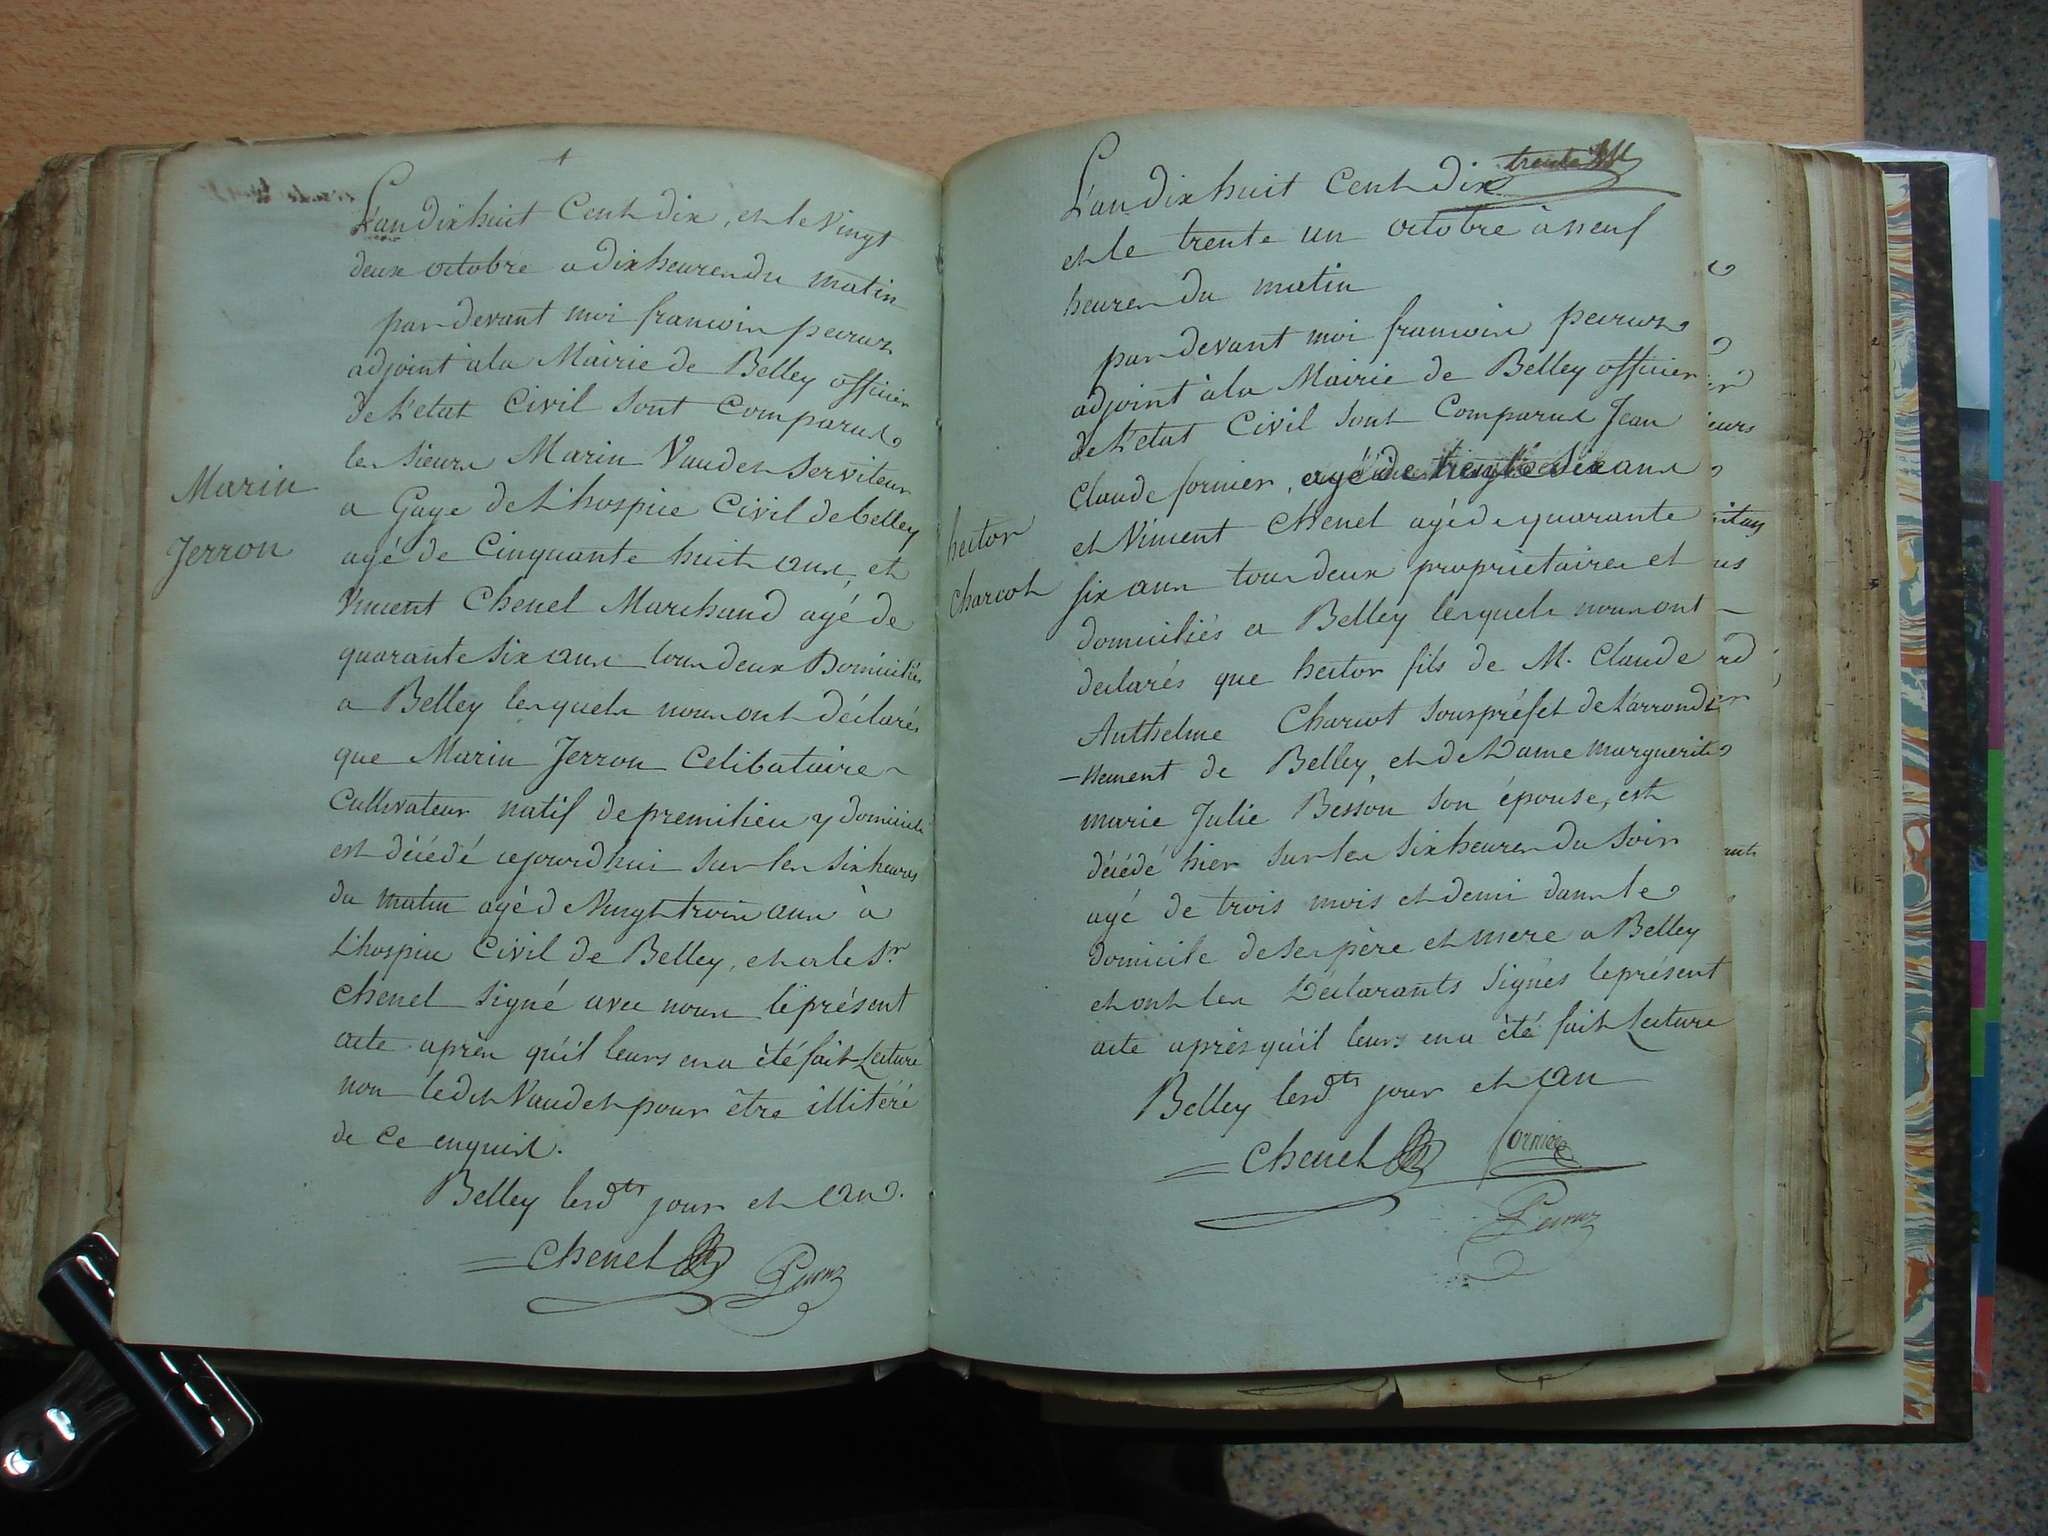 L'an dix huit Cent dix, et le Vingt
deux octobre a dix heures du matin
par devant moi francois peirus
adjoint à la Mairie de Belley officier
de L'etat Civil sont Comparus
les sieurs Marin Vaudet serviteur
a Gage de L'hospice Civil de belley
agé de Cinquante huit ans, et
Vincent Chenel Marchand agé de
quarante six ans tous deux Domiciliés
a Belley lesquels nous ont déclarés
que Marin Jerron Celibataire
Cultivateur natif de premilieu y domicilié
est décédé cejourdhui sur les six heures
du matin agé de Vingt trois ans à
L'hospice Civil de Belley, et a le Sr
Chenel signé avec nous le présent
acte après qu'il leurs en a été fait Lecture
non ledit Vaudet pour être illitéré
de ce enquis.
Belley lesdts jour et an.
Chenel
Marin
Jerron
trente
L'an dix huit Cent dix
et le trente un octobre à neuf
heures du matin
par devant moi francois peirus
adjoint à la Mairie de Belley officier
de L'etat Civil sont Comparus Jean
Claude fornier, agé de trente six ans
et Vincent Chenel agé de quarante
six ans tous deux proprietaires et
domiciliés a Belley lesquels nous ont
declarés que hector fils de M. Claude
Anthelme Charcot souspréfet de L'arrondis
-sement de Belley, et de Dame Marguerite
marie Julie Besson son épouse, est
décédé hier sur les six heures du soir
agé de trois mois et demi dans le
domicile de ses père et mere a Belley
et ont les Déclarants signés le présent
acte après qu'il leurs en a été fait Lecture
Belley lesdts jour et an
Chenel fornier
hector
Charcot